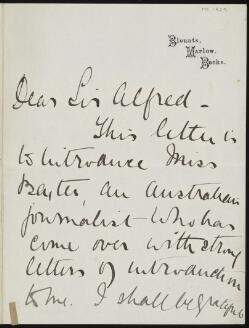 Blounts,
Marlow,
Bucks.
Dear Sir Alfred -
This letter is
to introduce Miss
Baxter, an Australian
journalist - who has
come over with strong
letters of introduction
to me. I shall be grateful